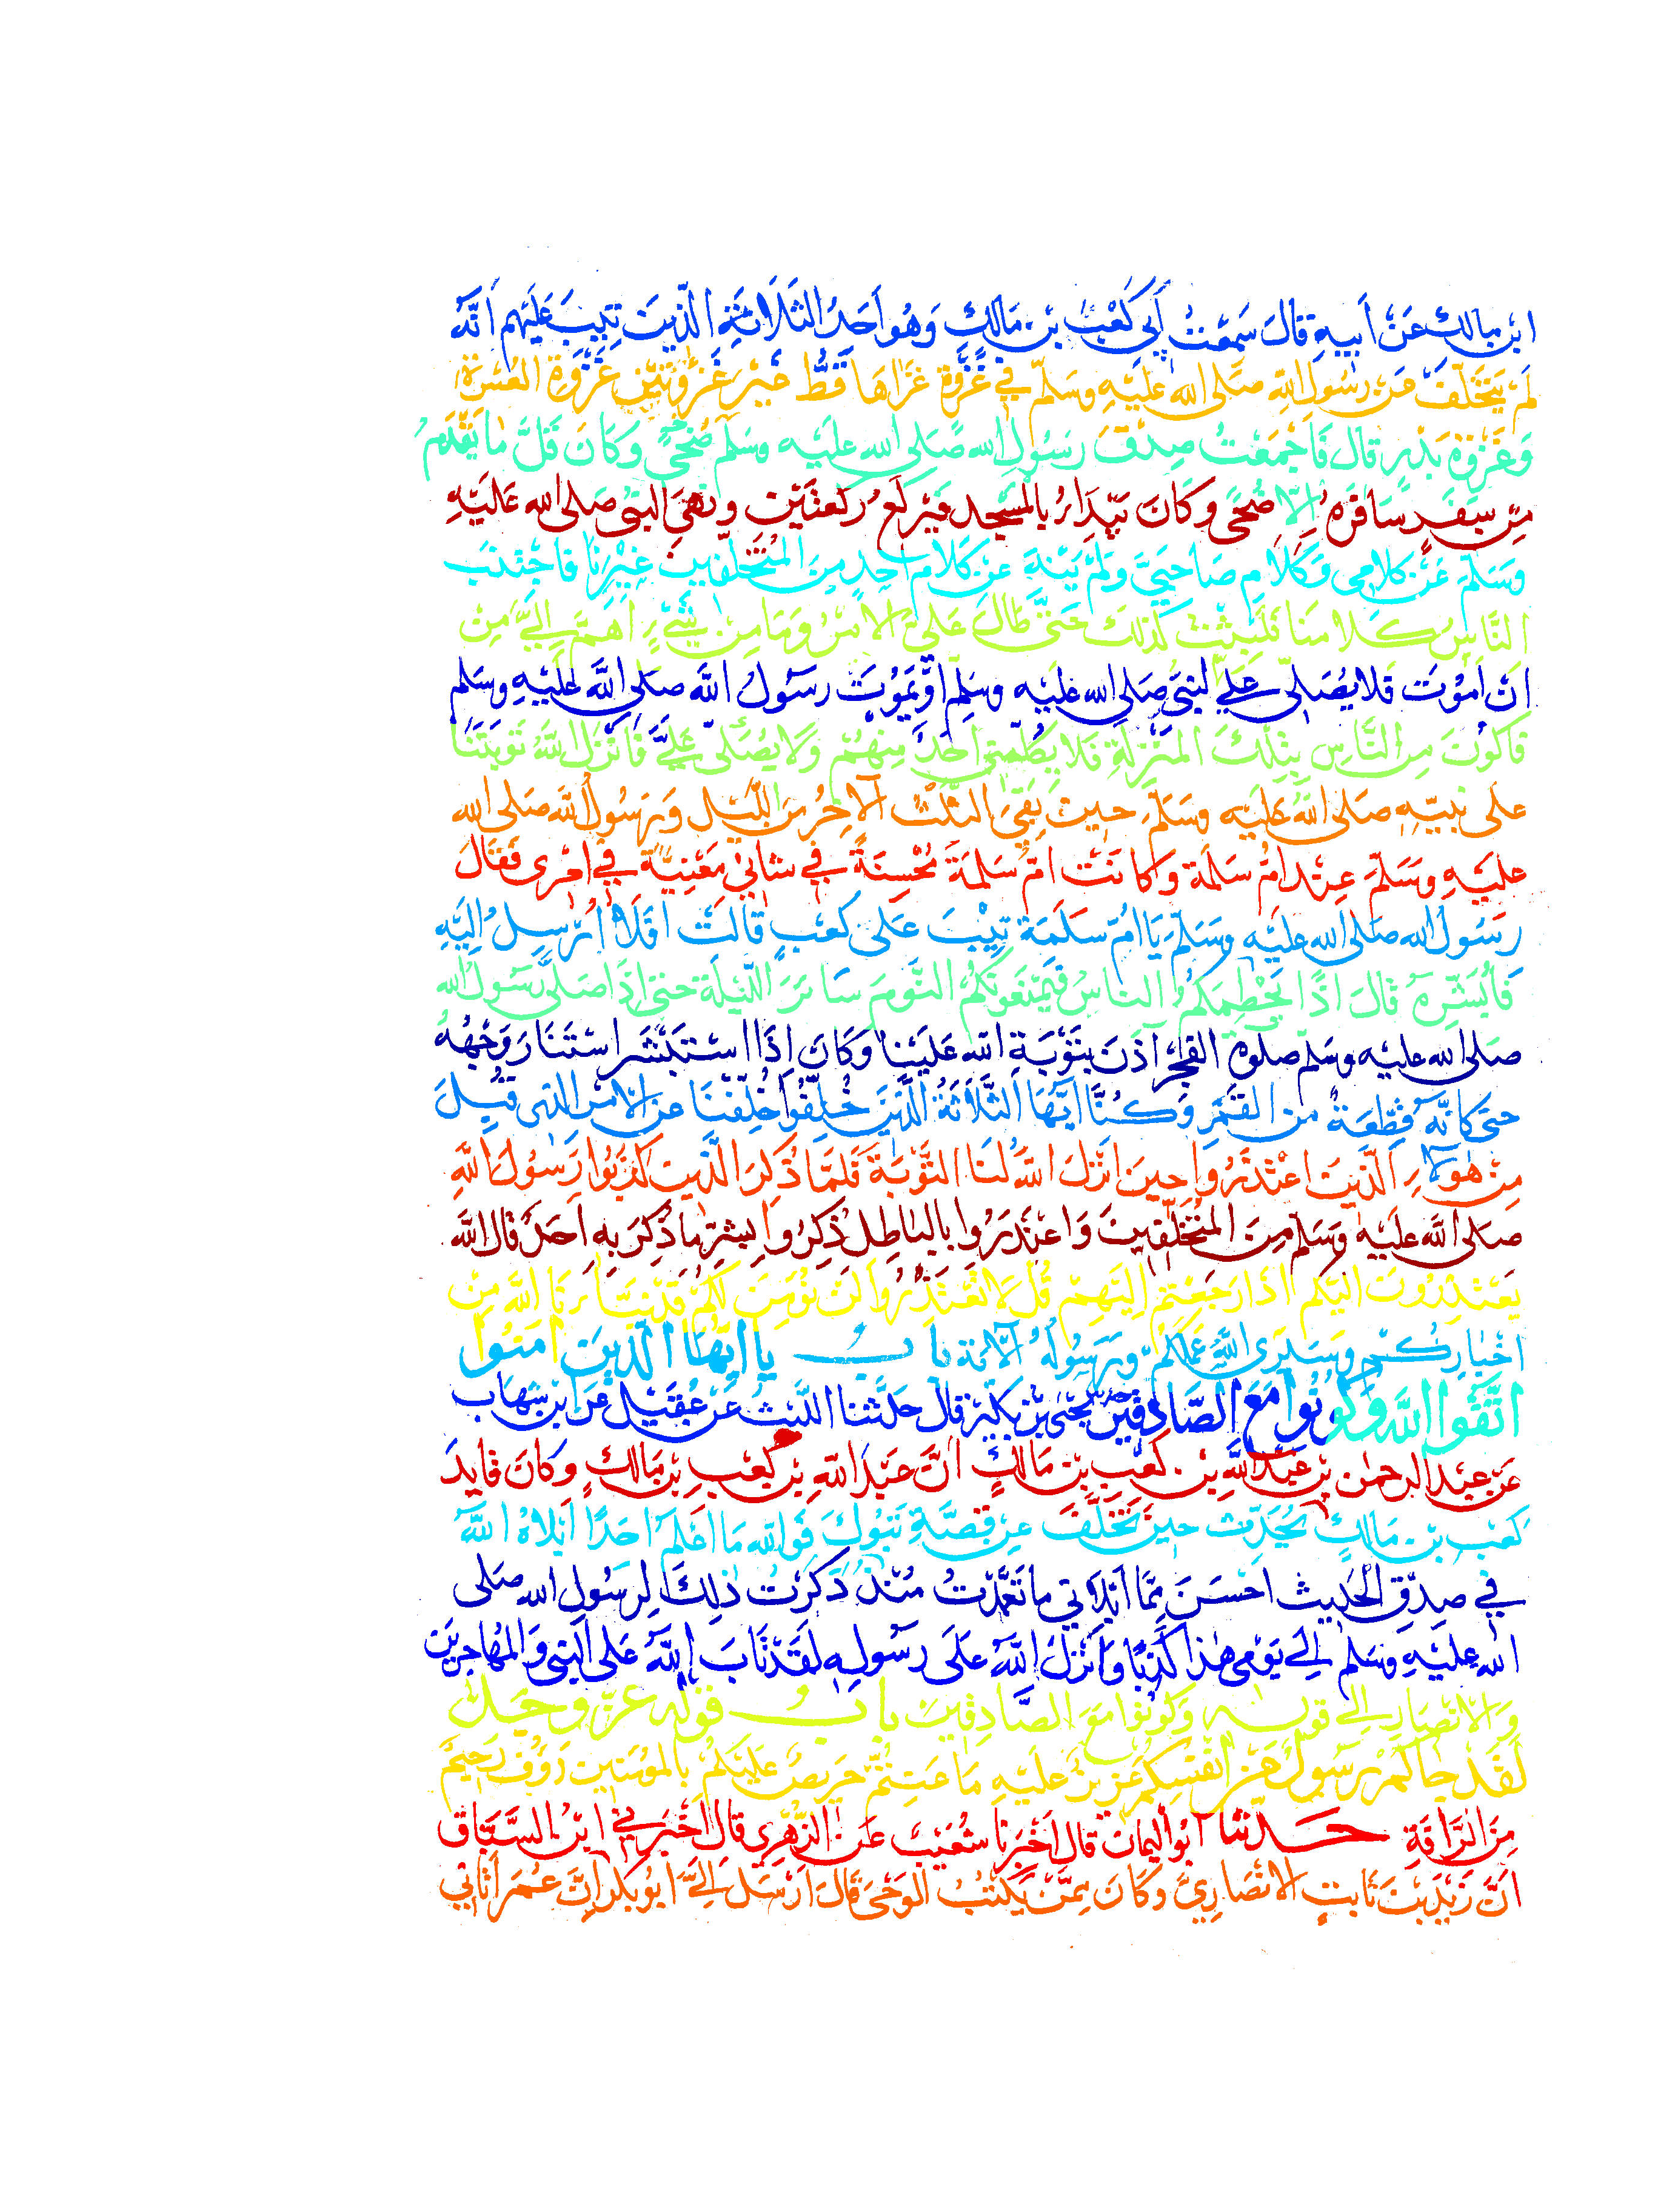 ابن مالك عَنْ اَبيهِ قالَ سَمِعْتُ اَبى كَعْبَ بن مَالكٍ وَهُوَ اَحَدُ الثَلَاثَةِ الّذينَ تيبَ عَلَيْهم اَنَّهُ
لَمْ يَتَخَلَّفْ عَن رسُول اللهِ صَلى الله عَليْهِ وسَلّم في غَزْوَةٍ غَزَاهَا قَطُّ غيْرَ غَزْوَتَيْن غَزْوَةِ العُسْرَةِ
وَغَزوَةِ بَدْرٍ قال فَاَجْمَعْتُ صِدْقَ رَسُولِ الله صَلى الله عليْه وسَلّم ضُحًى وَكَانَ قَلَّ مَا يَقْدَمُ
مِن سَفَرٍ سَافَرَهُ اِلّا ضُحًى وَكَانَ يَبْدَاُ بالمَسْجِد فيَرْكَعُ رَكعَتَيْنِ ونَهَى النبى صَلى الله عَليْهِ
وَسَلّمَ عَنْ كلامِى وَكَلامِ صَاحِبَيَّ وَلَمْ يَنْهَ عَنْ كَلَامِ اَحَدٍ مِنَ المُتَخَلّفينَ غيْرِنا فَاجْتَنَبَ
النَّاسُ كَلَامنَا فَلَبِثْتُ كَذلِكَ حَتّى طَالَ عَلَىَّ الاَمْرُ وَمَا مِنْ شَيْءٍ اَهَمَّ اِلَيَّ مِن
اَنْ اَمُوْتَ فَلا يُصَلّى عَلَيَّ النبىُّ صَلى الله عَليْه وسَلم اَوْ يَمُوْتَ رسَوُلُ اللّهَ صَلى اللّهَ عَليْهِ وسَلم
فاكونَ مِنَ النَّاسِ بِتلْكَ المَنْزِلَةِ فَلا يُكَلّمُنى اَحَدٌ مِنهُمْ وَلا يُصَلّى عَلَيَّ فَاَنْزَلَ اللّهُ تَوْبَتَنَا
عَلى نَبيّهِ صَلى اللّهُ عَلَيْه وسَلّمَ حِينَ بَقىَ الثّلُثُ الآخِرُ مِنَ اللّيْلِ وَرَسُولُ اللّه صَلى الله
عليْهِ وَسَلّمَ عِنْدَ امّ سَلَمَة وَكانَتْ امّ سَلمَةَ مُحْسِنَةً في شانى مَعْنِيَّةً في اَمْرى فَقالَ
رَسُولُ الله صَلى الله عليْه وَسَلّمَ يَا اُمّ سَلَمَة تِيْبَ عَلى كَعْبٍ قَالَتْ اَفَلَا اُرْسِلُ اِلَيْهِ
فَاُبَشّرهُ قالَ اذًا يَحْطِمَكُمُ الناسُ فيَمْنَعُونَكُمُ النَّومَ سَائرَ اللّيْلَةِ حتى اِذَا صَلى رَسُول الله
صَلى الله عليْه وسَلم صلوةَ الفَجْرِ آذَنَ بِتَوْبَةِ الله عَلَيْنا وَكَانَ اِذَا اسْتَبْشَرَ اسْتَنَارَ وَجْهُهُ
حتى كَاَنَّهُ قِطْعَةٌ من القَمَرِ وَكُنَّا اَيّهَا الثَّلَاثَةُ الَّذِيْنَ خُلّفُوا خُلّفْنَا عَن الاَمْرِ الذى قُبِلَ
مِنْ هَؤلَاءِ الّذينَ اعْتَذَرُوا حِينَ اَنْزَلَ اللّهُ لَنَا التَّوْبَةَ فَلمَّا ذُكِرَ الّذينَ كَذَبُوا رَسُولَ اللّهِ
صَلى اللّهُ عَليْه وَسَلّم مِنَ المُتَخَلّفِينَ وَاعْتَذَرُوا بِالبَاطِل ذُكِرُوا بِشَرّ مَا ذُكِرَ بِهِ اَحَدٌ قال الله
يَعْتَذِرُونَ اِلَيْكم اذَا رَجَعْتم اِلَيْهِمْ قُلْ لا تَعْتَذِرُوا لَنْ نُؤمِنَ لَكُمْ قَدْ نَبَّاَنَا اللّهُ مِنْ
اَخْبَارِكُمْ وَسَيَرَى اللّهُ عَمَلَكُمْ وَرَسُولُهُ الآيَة بابُ يا اَيّهَا الّذينَ امَنُوا
اتَّقُوا اللّهَ وَكُونُوا مَعَ الصَّادِقينَ حدثنا يَحْيَى بْنُ بُكَيْر قال حَدَّثَنا اللّيْثُ عَنْ عُقَيْل عَن ابنِ شِهَاب
عَنْ عَبْدِ الرحمٰن بْن عَبْدِ اللّهِ بْنِ كَعْبِ بْنِ مَالكٍ اَنَّ عَبْدَ اللّهِ بْن كَعْبِ بْنِ مَالكٍ وَكَانَ قَايدَ
كَعْب بْن مَالكٍ يُحَدّثُ حينَ تَخَلَّفَ عن قِصَّةِ تَبُوكَ فَوَ اللّه مَا اَعْلَمُ اَحَدًا اَبْلَاهُ اللّهُ
في صِدْقِ الْحَدِيثِ احْسَنَ مِمَّا اَبْلَاني مَا تَعَمَّدْتُ مُنْذُ ذَكَرْتُ ذٰلِكَ لِرَسُولِ الله صَلى
اللهُ عليْهِ وسَلم اِلى يَوْمى هٰذا كَذِبًا وَاَنْزَلَ اللّهُ عَلَى رسُولِهِ لَقَدْ تَابَ اللّهُ عَلى النَّبى وَالمُهَاجِرينَ
وَالانْصَارِ اِلى قولِه وَكُونُوا مَعَ الصَّادِقينَ بابُ قَولِه عَزّ وَجَلّ
لَقَدْ جاءكمْ رَسُولٌ مِن اَنْفُسِكمْ عَزيزٌ عَلَيْهِ مَا عَنِتُّمْ حَريصٌ عَليْكُمْ بِالمؤمنينَ رَؤفٌ رَحِيمٌ
مِنَ الرَّافَةِ حَدّثنا اَبُو اليمان قال اخْبَرَنا شُعَيْبٌ عَنِ الزّهْرِى قال اَخْبَرَنى ابْنُ السَّبَّاق
انَّ زَيْدَ بْنَ ثَابتٍ الانْصَارِيَّ وَكَانَ مِمَّنْ يَكْتُبُ الوَحْىَ قالَ اَرْسَلَ اِلَيَّ اَبُو بَكرٍ اِنَّ عُمَرَ اَتَانِي